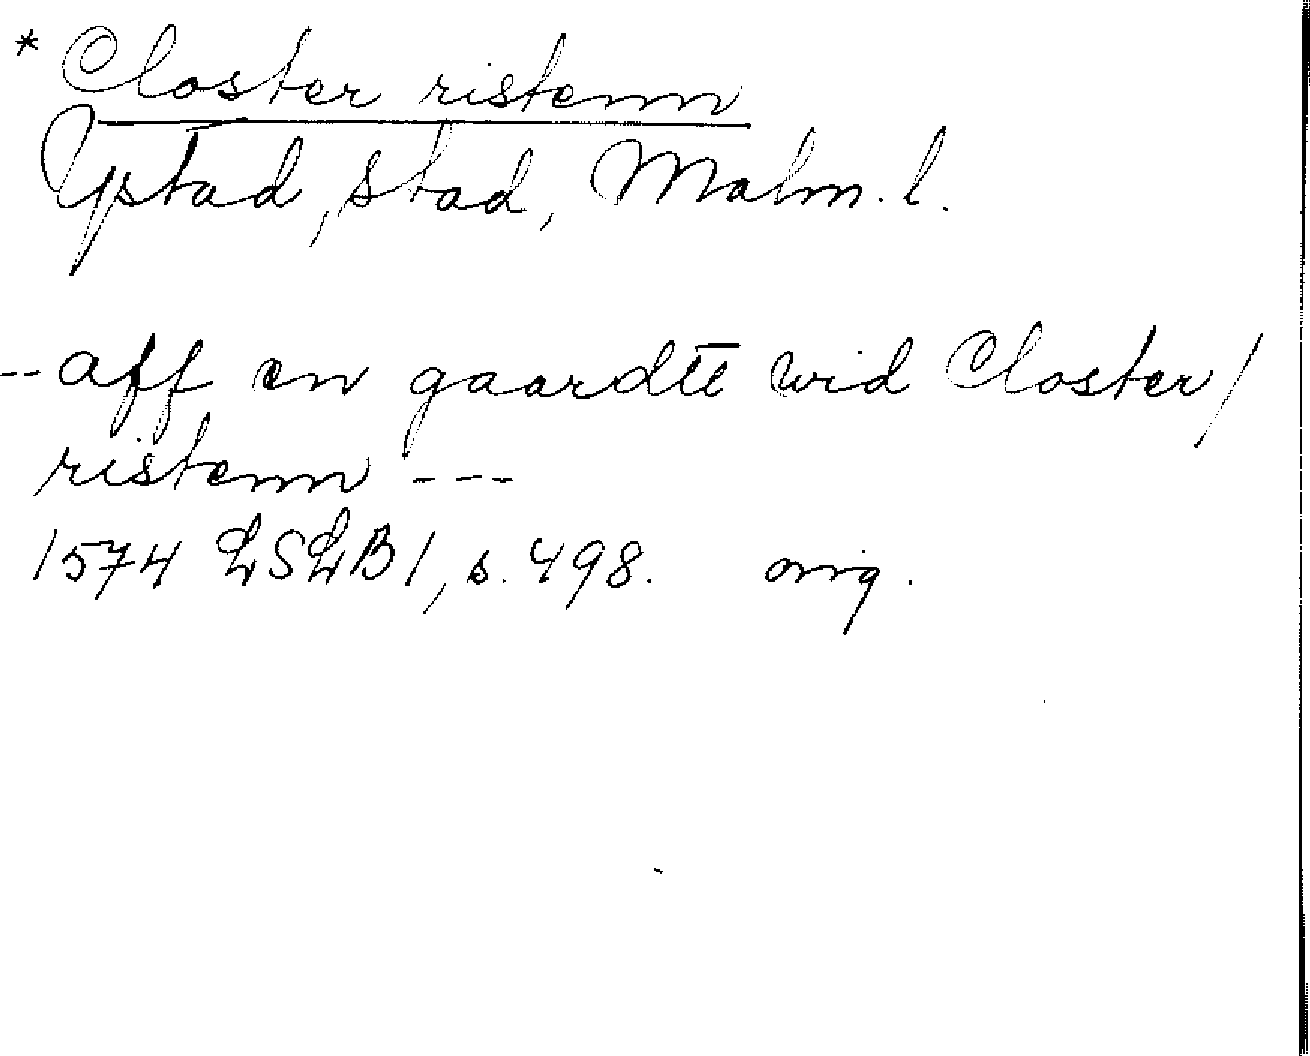 * Closter ristenn
Ystad, stad, Malm. l.
-- aff en gaardtt wid Closter/
ristenn ---
1574 LSLB 1, s. 498. orig.